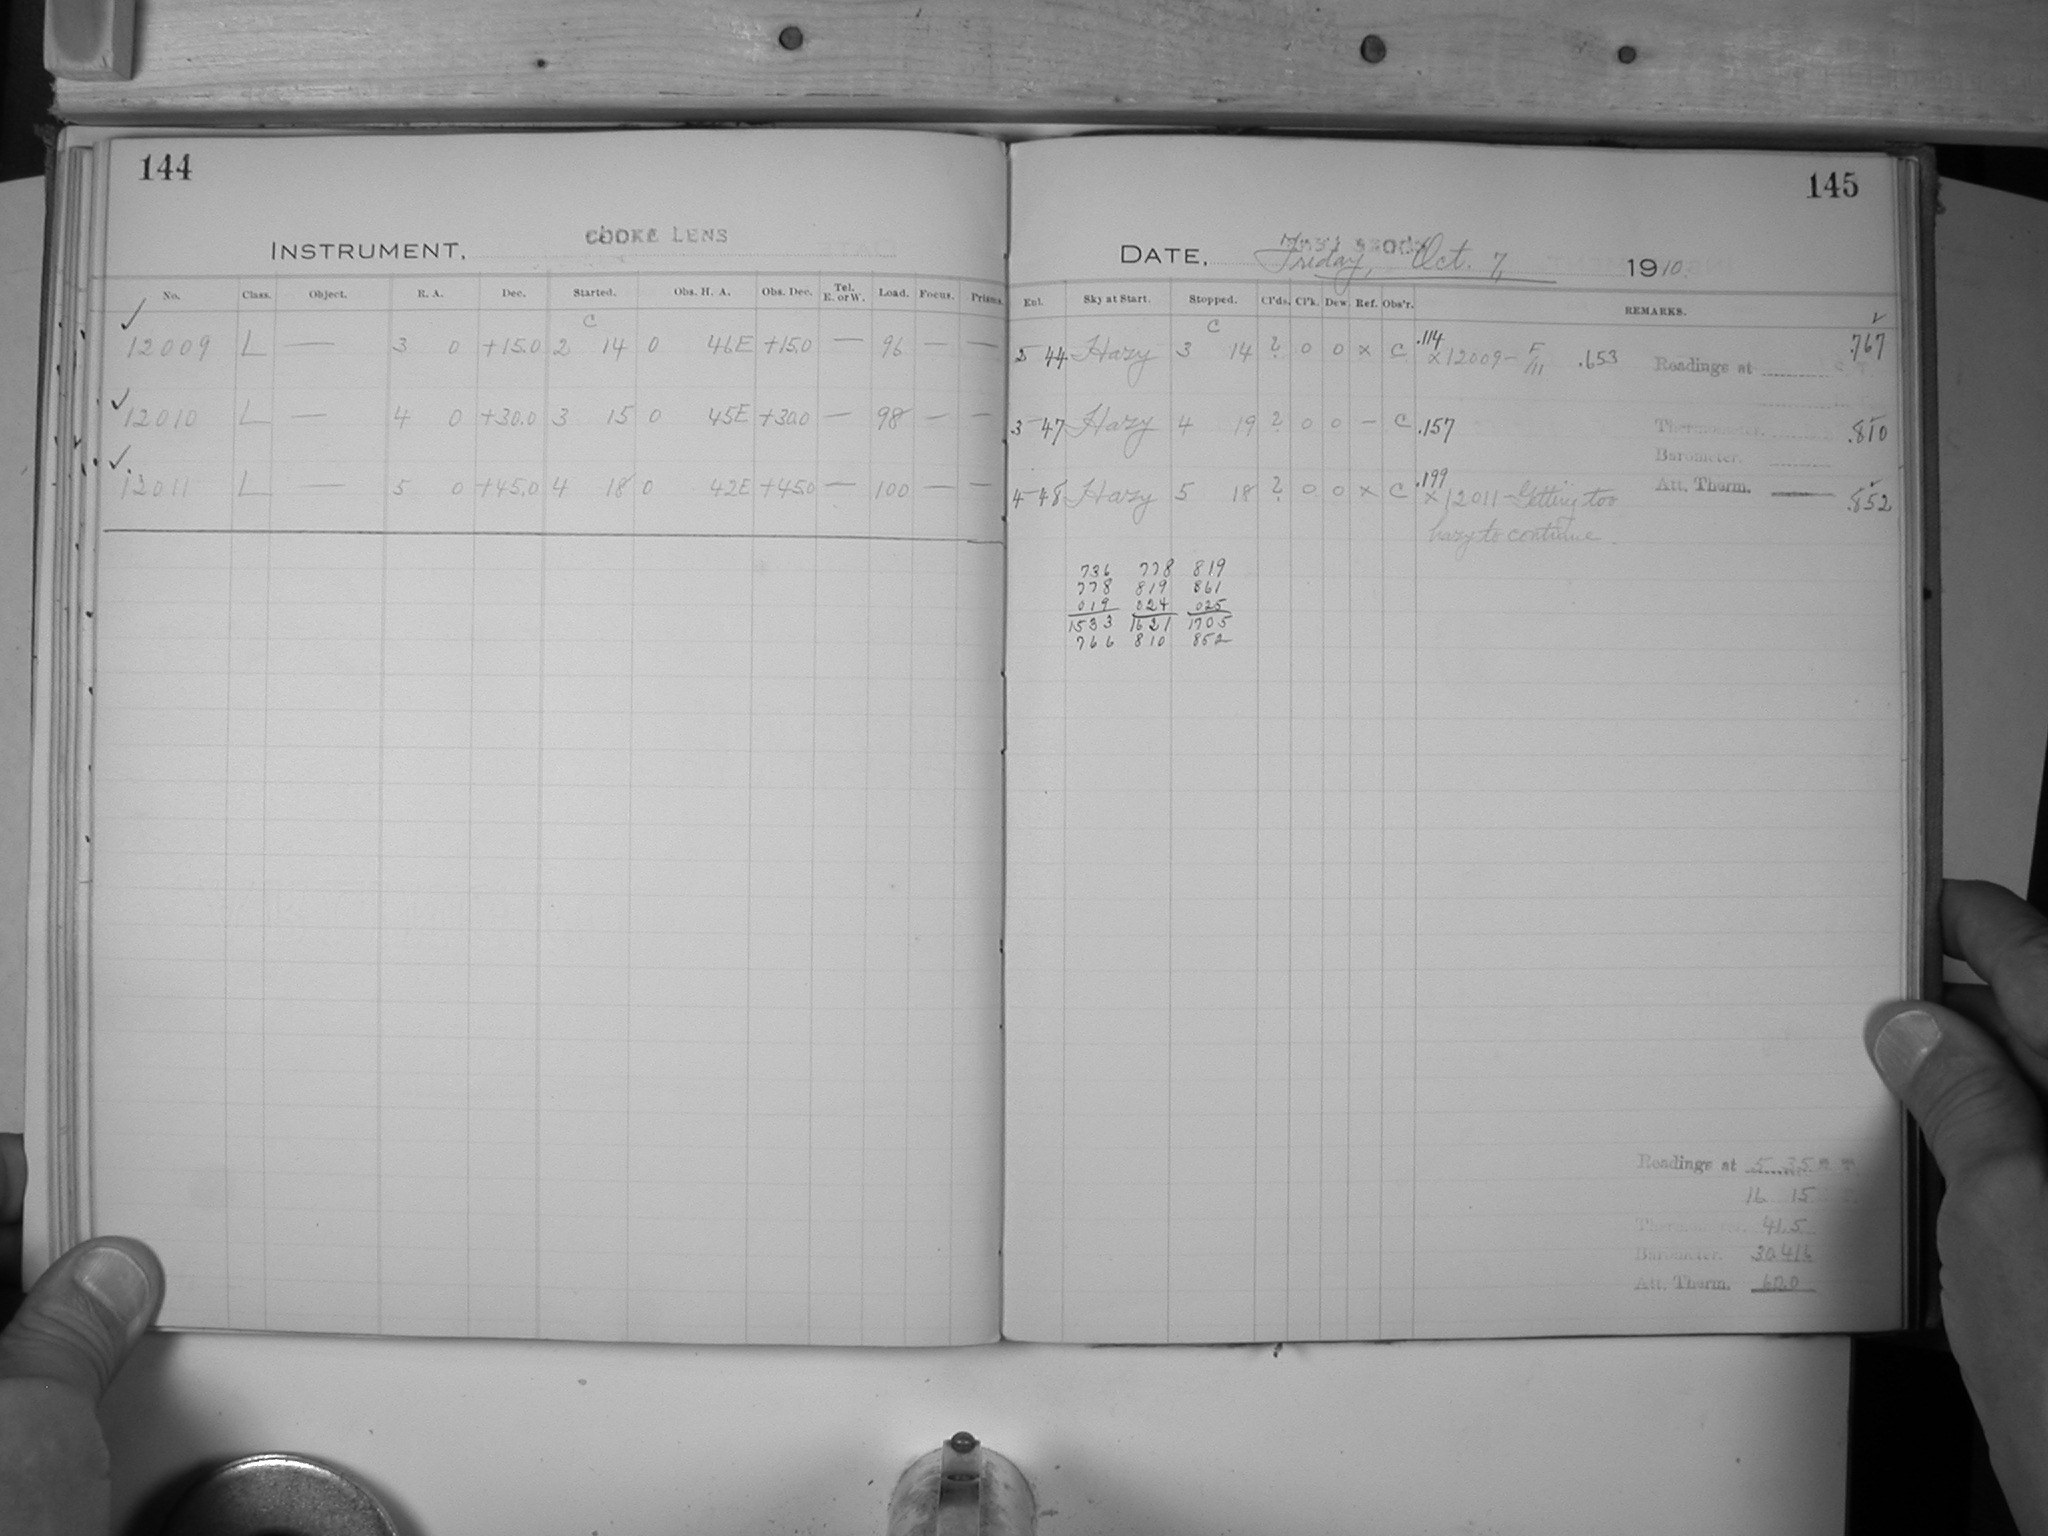 144
COOKE LENS
INSTRUMENT.
No. Class. Object. R. A. Dec. Started. Obs. H. A. Obs. Dec. Tel. E. or W. Load. Focus. Prisms.
C
✓ 12009 L — 3 0 +15.0 2 14 0 46E +15.0 — 96 — —
✓ 12010 L — 4 0 +30.0 3 15 0 45E +30.0 — 98 — —
✓ 12011 L — 5 0 +45.0 4 18 0 42E +45.0 — 100 — —
145
DATE. Friday, Oct. 7, 1910
Enl. Sky at Start. Stopped. Cl'ds. Cl'k. Dew. Ref. Obs'r. REMARKS.
C .114 ✓
2 44 Hazy 3 14 ? 0 0 x C x 12009 - F/11 .653 .767
Readings at
3 47 Hazy 4 19 ? 0 0 — C .157 Thermometer. .810
Barometer.
.199 Att. Therm.
4 48 Hazy 5 18 ? 0 0 x C x 12011 - Getting too .852
hazy to continue.
736 778 819
778 819 861
019 024 025
1533 1621 1705
766 810 852
Readings at 5 35
16 15
Thermometer. 41.5
Barometer. 30.416
Att. Therm. 60.0